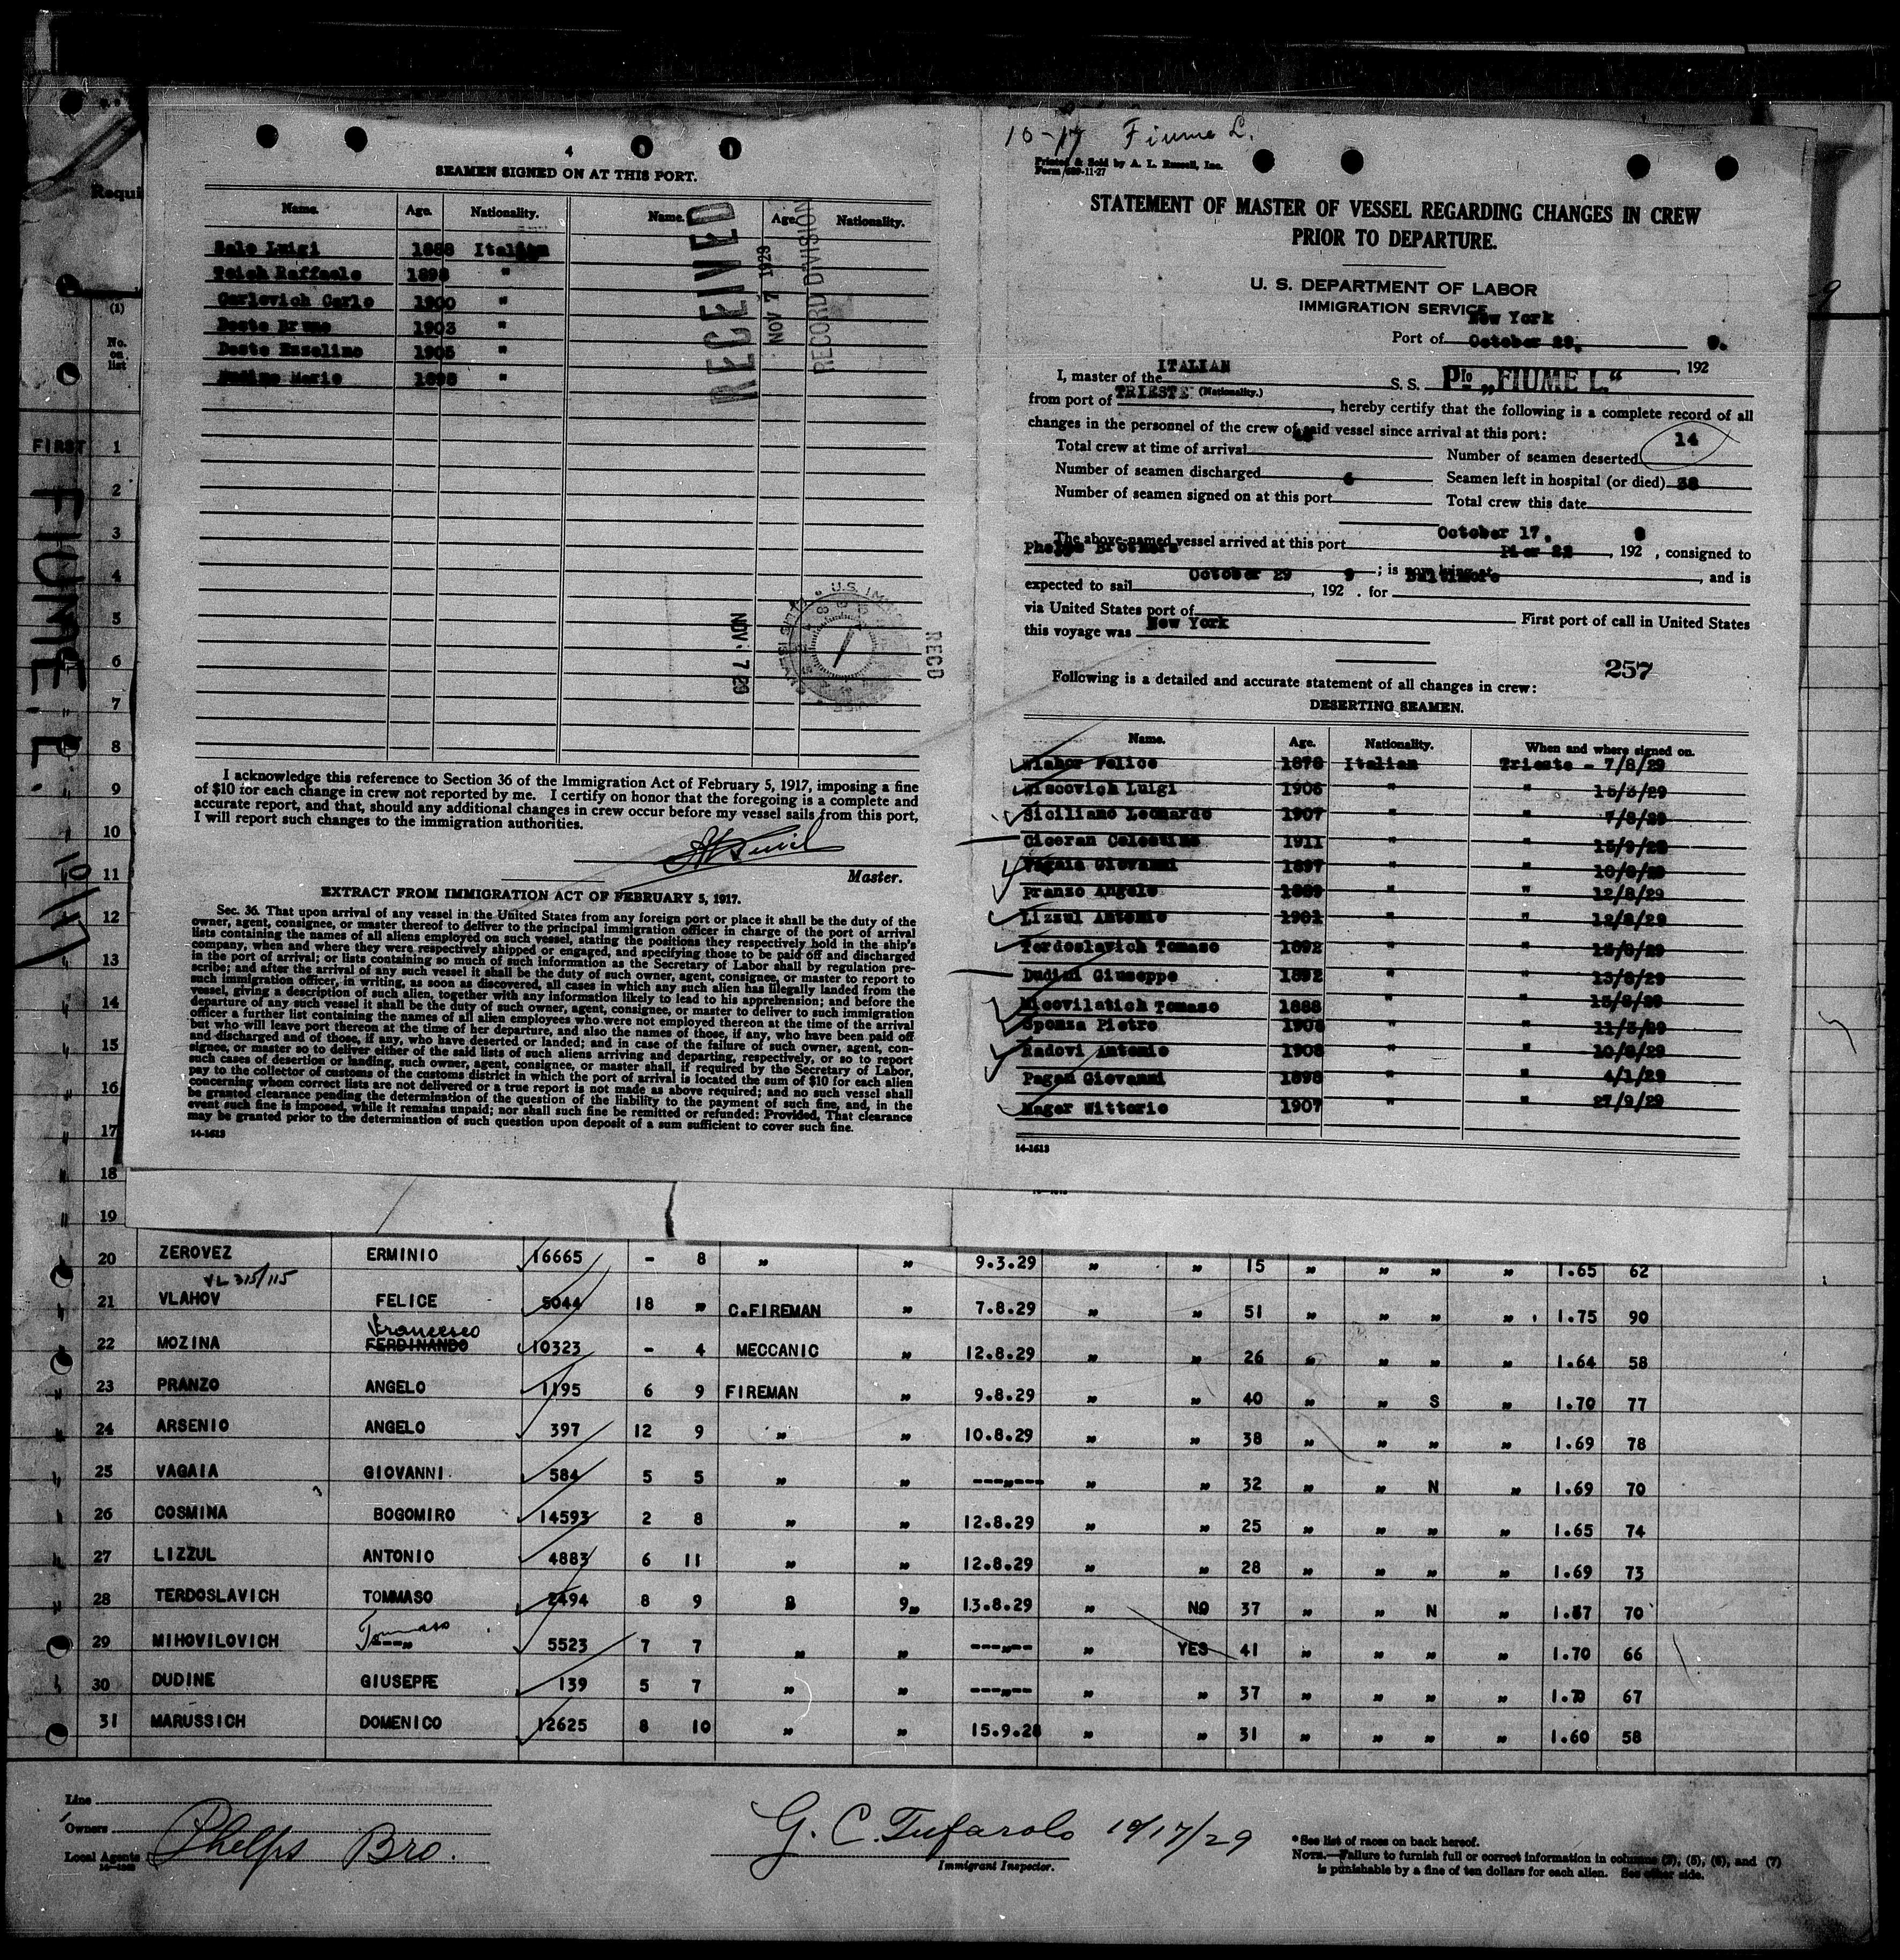 4
SEAMEN SIGNED ON AT THIS PORT.
Name. Age. Nationality. Name. Age. Nationality.
Luigi 1888 Italian
Raffaele 1898 "
Carlevich Carlo 1900 "
Deste Bruno 1903 "
Deste 1905 "
Mario 1898 "
RECEIVED
NOV 7 1929
RECORD DIVISION
NOV. 7 29
RECD
I acknowledge this reference to Section 36 of the Immigration Act of February 5, 1917, imposing a fine
of $10 for each change in crew not reported by me. I certify on honor that the foregoing is a complete and
accurate report, and that, should any additional changes in crew occur before my vessel sails from this port,
I will report such changes to the immigration authorities.
Master.
EXTRACT FROM IMMIGRATION ACT OF FEBRUARY 5, 1917.
Sec. 36. That upon arrival of any vessel in the United States from any foreign port or place it shall be the duty of the
owner, agent, consignee, or master thereof to deliver to the principal immigration officer in charge of the port of arrival
lists containing the names of all aliens employed on such vessel, stating the positions they respectively hold in the ship's
company, when and where they were respectively shipped or engaged, and specifying those to be paid off and discharged
in the port of arrival; or lists containing so much of such information as the Secretary of Labor shall by regulation pre-
scribe; and after the arrival of any such vessel it shall be the duty of such owner, agent, consignee, or master to report to
such immigration officer, in writing, as soon as discovered, all cases in which any such alien has illegally landed from the
vessel, giving a description of such alien, together with any information likely to lead to his apprehension; and before the
departure of any such vessel it shall be the duty of such owner, agent, consignee, or master to deliver to such immigration
officer a further list containing the names of all alien employees who were not employed thereon at the time of the arrival
but who will leave port thereon at the time of her departure, and also the names of those, if any, who have been paid off
and discharged and of those, if any, who have deserted or landed; and in case of the failure of such owner, agent, con-
signee, or master so to deliver either of the said lists of such aliens arriving and departing, respectively, or so to report
such cases of desertion or landing, such owner, agent, consignee, or master shall, if required by the Secretary of Labor,
pay to the collector of customs of the customs district in which the port of arrival is located the sum of $10 for each alien
concerning whom correct lists are not delivered or a true report is not made as above required; and no such vessel shall
be granted clearance pending the determination of the question of the liability to the payment of such fine, and, in the
event such fine is imposed, while it remains unpaid; nor shall such fine be remitted or refunded: Provided, That clearance
may be granted prior to the determination of such question upon deposit of a sum sufficient to cover such fine.
14-1613
10-17 Fiume L.
Printed & Sold by A. L. Russell, Inc.
Form 689-11-27
STATEMENT OF MASTER OF VESSEL REGARDING CHANGES IN CREW
PRIOR TO DEPARTURE.
U. S. DEPARTMENT OF LABOR
IMMIGRATION SERVICE
New York
Port of October 29, 9.
, 192
ITALIAN
I, master of the S. S. P!o „FIUME L."
(Nationality.)
from port of TRIESTE , hereby certify that the following is a complete record of all
changes in the personnel of the crew of said vessel since arrival at this port:
Total crew at time of arrival Number of seamen deserted 14
Number of seamen discharged 6 Seamen left in hospital (or died) 38
Number of seamen signed on at this port Total crew this date
October 17, 9
The above-named vessel arrived at this port , 192 , consigned to
Phelps Brothers Pier 22
; is now lying at , and is
October 29 9 Baltimore
expected to sail , 192 . for
via United States port of First port of call in United States
this voyage was New York
257
Following is a detailed and accurate statement of all changes in crew:
DESERTING SEAMEN.
Name. Age. Nationality. When and where signed on.
Vlahov Felice 1878 Italian Trieste - 7/8/29
Miscovich Luigi 1906 " " 15/3/29
Siciliano Leonardo 1907 " " 7/8/29
Ciceran Celestino 1911 " " 15/9/28
Vagaia Giovanni 1897 " " 10/8/29
Pranzo Angelo 1889 " " 12/8/29
Lizzul Antonio 1901 " " 12/8/29
Terdoslavich Tomaso 1892 " " 13/8/29
Dudini Giuseppe 1892 " " 13/8/29
Micovilatich Tomaso 1888 " " 13/8/29
Sponza Pietro 1908 " " 11/3/29
Radovi Antonio 1908 " " 10/8/29
Pagan Giovanni 1898 " " 4/1/29
Mager Wittorio 1907 " " 27/9/29
14-1613
Requi
(1)
No.
on
list
FIRST
FIUME L. 10/17
1
2
3
4
5
6
7
8
9
10
11
12
13
14
15
16
17
18
19
20 ZEROVEZ ERMINIO 16665 - 8 „ „ 9.3.29 „ „ 15 „ „ „ „ 1.65 62
VL 315/115
21 VLAHOV FELICE 5044 18 „ C.FIREMAN „ 7.8.29 „ „ 51 „ „ „ „ 1.75 90
Francesco
22 MOZINA FERDINANDO 10323 - 4 MECCANIC „ 12.8.29 „ „ 26 „ „ „ „ 1.64 58
23 PRANZO ANGELO 1195 6 9 FIREMAN „ 9.8.29 „ „ 40 „ „ S „ 1.70 77
24 ARSENIO ANGELO 397 12 9 „ „ 10.8.29 „ „ 38 „ „ „ „ 1.69 78
25 VAGAIA GIOVANNI. 584 5 5 „ „ ---„--- „ 32 „ „ N „ 1.69 70
26 COSMINA BOGOMIRO 14593 2 8 „ „ 12.8.29 „ „ 25 „ „ „ „ 1.65 74
27 LIZZUL ANTONIO 4883 6 11 „ „ 12.8.29 „ „ 28 „ „ „ „ 1.69 73
28 TERDOSLAVICH TOMMASO 2494 8 9 „ 9„ 13.8.29 „ NO 37 „ „ N „ 1.67 70
29 MIHOVILOVICH Tommaso 5523 7 7 „ „ ---„-- „ YES 41 „ „ „ „ 1.70 66
30 DUDINE GIUSEPPE 139 5 7 „ „ ---„-- „ „ 37 „ „ „ „ 1.70 67
31 MARUSSICH DOMENICO 12625 8 10 „ „ 15.9.28 „ „ 31 „ „ „ „ 1.60 58
Line
Owners
Local Agents Phelps Bro.
G. C. Tufarolo 10/17/29
Immigrant Inspector.
* See list of races on back hereof.
NOTE.—Failure to furnish full or correct information in columns (3), (5), (6), and (7)
is punishable by a fine of ten dollars for each alien. See other side.